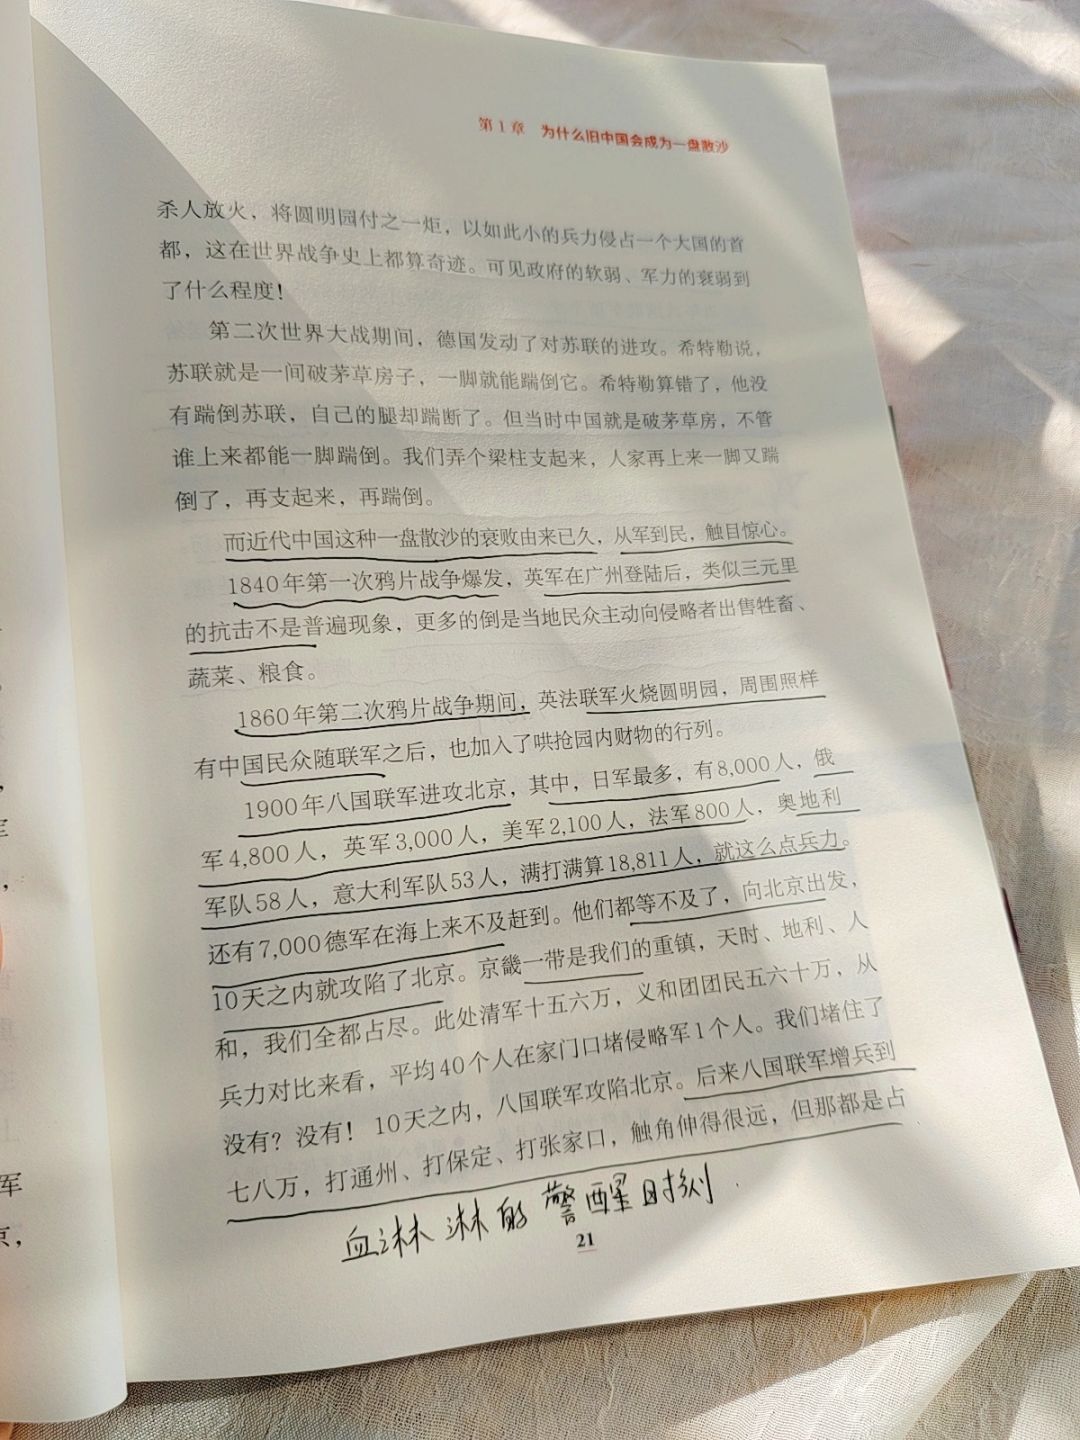 第1章 为什么旧中国会成为一盘散沙
杀人放火，将圆明园付之一炬，以如此小的兵力侵占一个大国的首
都，这在世界战争史上都算奇迹。可见政府的软弱、军力的衰弱到
了什么程度！
第二次世界大战期间，德国发动了对苏联的进攻。希特勒说，
苏联就是一间破茅草房子，一脚就能踹倒它。希特勒算错了，他没
有踹倒苏联，自己的腿却踹断了。但当时中国就是破茅草房，不管
谁上来都能一脚踹倒。我们弄个梁柱支起来，人家再上来一脚又踹
倒了，再支起来，再踹倒。
而近代中国这种一盘散沙的衰败由来已久，从军到民，触目惊心。
1840年第一次鸦片战争爆发，英军在广州登陆后，类似三元里
的抗击不是普遍现象，更多的倒是当地民众主动向侵略者出售牲畜、
蔬菜、粮食。
1860年第二次鸦片战争期间，英法联军火烧圆明园，周围照样
有中国民众随联军之后，也加入了哄抢园内财物的行列。
1900年八国联军进攻北京，其中，日军最多，有8,000人，俄
军4,800人，英军3,000人，美军2,100人，法军800人，奥地利
军队58人，意大利军队53人，满打满算18,811人，就这么点兵力。
还有7,000德军在海上来不及赶到。他们都等不及了，向北京出发，
10天之内就攻陷了北京。京畿一带是我们的重镇，天时、地利、人
和，我们全都占尽。此处清军十五六万，义和团团民五六十万，从
兵力对比来看，平均40个人在家门口堵侵略军1个人。我们堵住了
没有？没有！10天之内，八国联军攻陷北京。后来八国联军增兵到
七八万，打通州、打保定、打张家口，触角伸得很远，但那都是占
血淋淋的警醒时刻
21
军